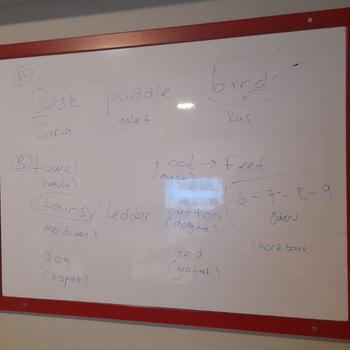 A
Desk puddle bird
Sıra gölet kuş
B towel foot → Feet
(havlu) (ayak)
stairs / ledder button
(merdiven) (düğme)
6-7-8-9
ödev
(workbook
dog bed
(köpek) (yatak)